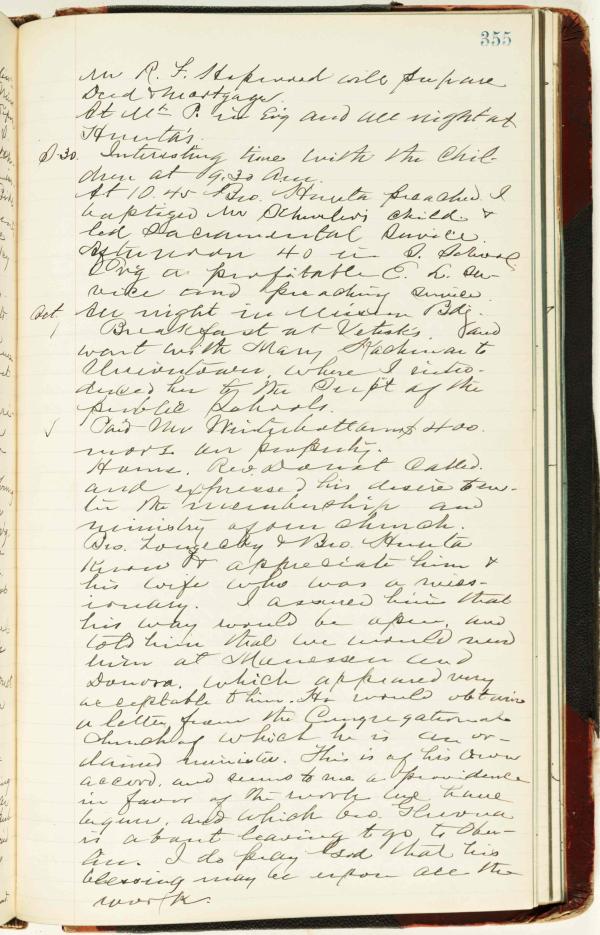 355
Mr R. F. Hopwood will prepare
Deed & Mortgage.
At Mt P. in Evg and all night at
Huneta's.
S. 30. Interesting time with the chil-
dren at 9.30 Am.
At 10.45 Bro. Huneta preached. I
baptized Mr Schuslers child &
led Sacramental Service.
Afternoon 40 in S. School
Evg a profitable C. E. Ser-
vice and preaching service.
All night in Mission Bdg.
Oct. 1 Breakfast at Vetisk's, and
went with Mary Kachman to
Uniontown, where I intro-
duced her to the Supt of the
public Schools.
Paid Mr Winterbottom $400.
more on property.
Home. Rev Donat Called.
and expressed his desire to en-
ter the membership and
ministry of our church.
Bro. Longecky & Bro. Huneta
know & appreciate him &
his wife who was a miss-
ionary. I assured him that
his way would be open, and
told him that we would need
him at Manessen and
Donora, which appeared very
acceptable to him. He would obtain
a letter from the Congregational
Church of which he is an or-
dained minister. This is of his own
accord, and seems to me a providence
in favor of the work we have
begun, and which bro.
is about leaving to go to Ober-
lin. I do pray God that his
blessing may be upon all the
work.